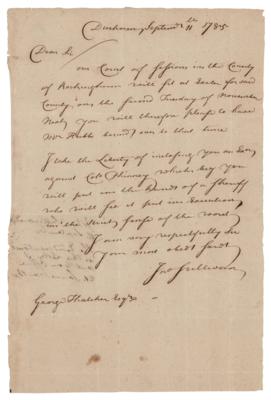 Durham Septem 11th 1785
Dear Sir
our Court of sessions in the County
of Rockingham will set at Exeter for said
County, on the second Tuesday of November
Next, you will therefore please to have
Mr
ready to that time
I take the Liberty of inclosing you an Exon
against Colo Phinney which beg you
will put in the Hands of a Sheriff
who will see it put in Execution,
in the strict sense of the word
I am very respectfully Sir
your most obedt Servt
Jno Sullivan
George Thatcher Esqr